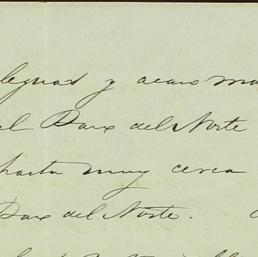 leguas y acaso ma
el Paso del Norte
hasta muy cerca
Paso del Norte.